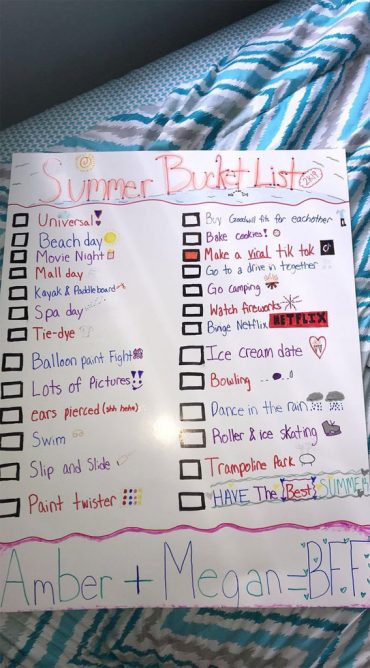 Summer Bucket List
2k19
Universal!
Beach day
Movie Night
Mall day
Kayak & Paddleboard
Spa day
Tie-dye
Balloon paint Fight
Lots of Pictures!!
ears pierced (shh hehe)
Swim
Slip and Slide
Paint twister
Buy Goodwill fits for eachother
Bake cookies!
Make a viral tik tok
Go to a drive in together
Go camping
Watch fireworks
Binge Netflix NETFLIX
Ice cream date
Bowling
Dance in the rain
Roller & ice skating
Trampoline Park
HAVE The Best SUMMER
Amber + Megan = BFF